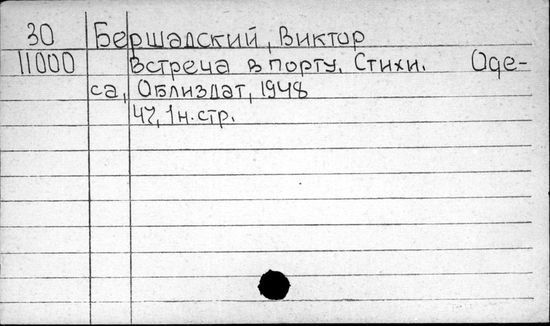 30 Бершадский, Виктор
11000 Встреча в порту. Стихи. Оде-
са, Облиздат, 1948
47, 1 н. стр.